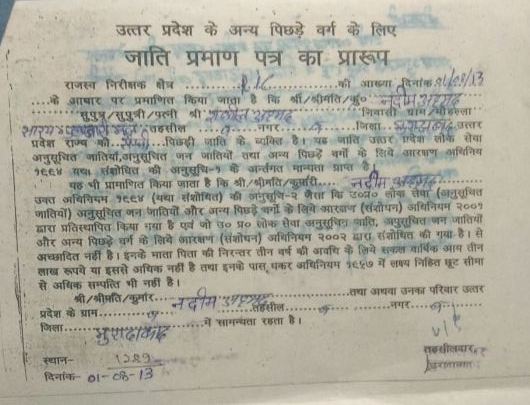 उत्तर प्रदेश के अन्य पिछड़े वर्ग के लिए
जाति प्रमाण पत्र का प्रारूप
राजस्व निरीक्षक क्षेत्र ......... की आख्या दिनांक
....के आधार पर प्रमाणित किया जाता है कि श्री/श्रीमति/कु० नदीम अहमद
सुपुत्र/सुपुत्री/पत्नी श्री अहमद निवासी ग्राम/मौहल्ला
तहसील ....... नगर ....... जिला मुरादाबाद उत्तर
प्रदेश राज्य की ....... पिछड़ी जाति के व्यक्ति है। यह जाति उत्तर प्रदेश लोक सेवा
अनुसूचित जातियों,अनुसूचित जन जातियों तथा अन्य पिछड़े वर्गो के लिये आरक्षण अधिनियम
१९९४ यथा संशोधित की अनुसूचि-१ के अन्तर्गत मान्यता प्राप्त है।
यह भी प्रामाणित किया जाता है कि श्री/श्रीमति/कुमारी..... नदीम अहमद
उक्त अधिनियम १९९४ (यथा संशोधित) की अनुसूचि-२ जैसा कि उ०प्र० लोक सेवा (अनुसूचित
जातियों) अनुसूचित जन जातियों और अन्य पिछड़े वर्ग के लिये आरक्षण (संशोधन) अधिनियम २००१
द्वारा प्रतिस्थापित किया गया है एवं जो उ० प्र० लोक सेवा अनुसूचित जाति, अनुसूचित जन जातियों
और अन्य पिछड़े वर्ग के लिये आरक्षण (संशोधन) अधिनियम २००२ द्वारा संशोधित की गया है। से
अच्छादित नहीं है। इनके माता पिता की निरन्तर तीन वर्ष की अवधि के लिये सकल वार्षिक आय तीन
लाख रूपये या इससे अधिक नहीं है तथा इनके पास धनकर अधिनियम १९५७ में लक्ष्य निहित छूट सीमा
से अधिक सम्पत्ति भी नहीं है।
श्री/श्रीमति/कुमारी..... नदीम अहमद .....तथा अथवा उनका परिवार उत्तर
प्रदेश के ग्राम..... तहसील..... नगर.....
जिला..... मुरादाबाद .....में सामन्यता रहता है।
स्थान- 1289
दिनांक- 01-08-13
तहसीलदार
मुरादाबाद